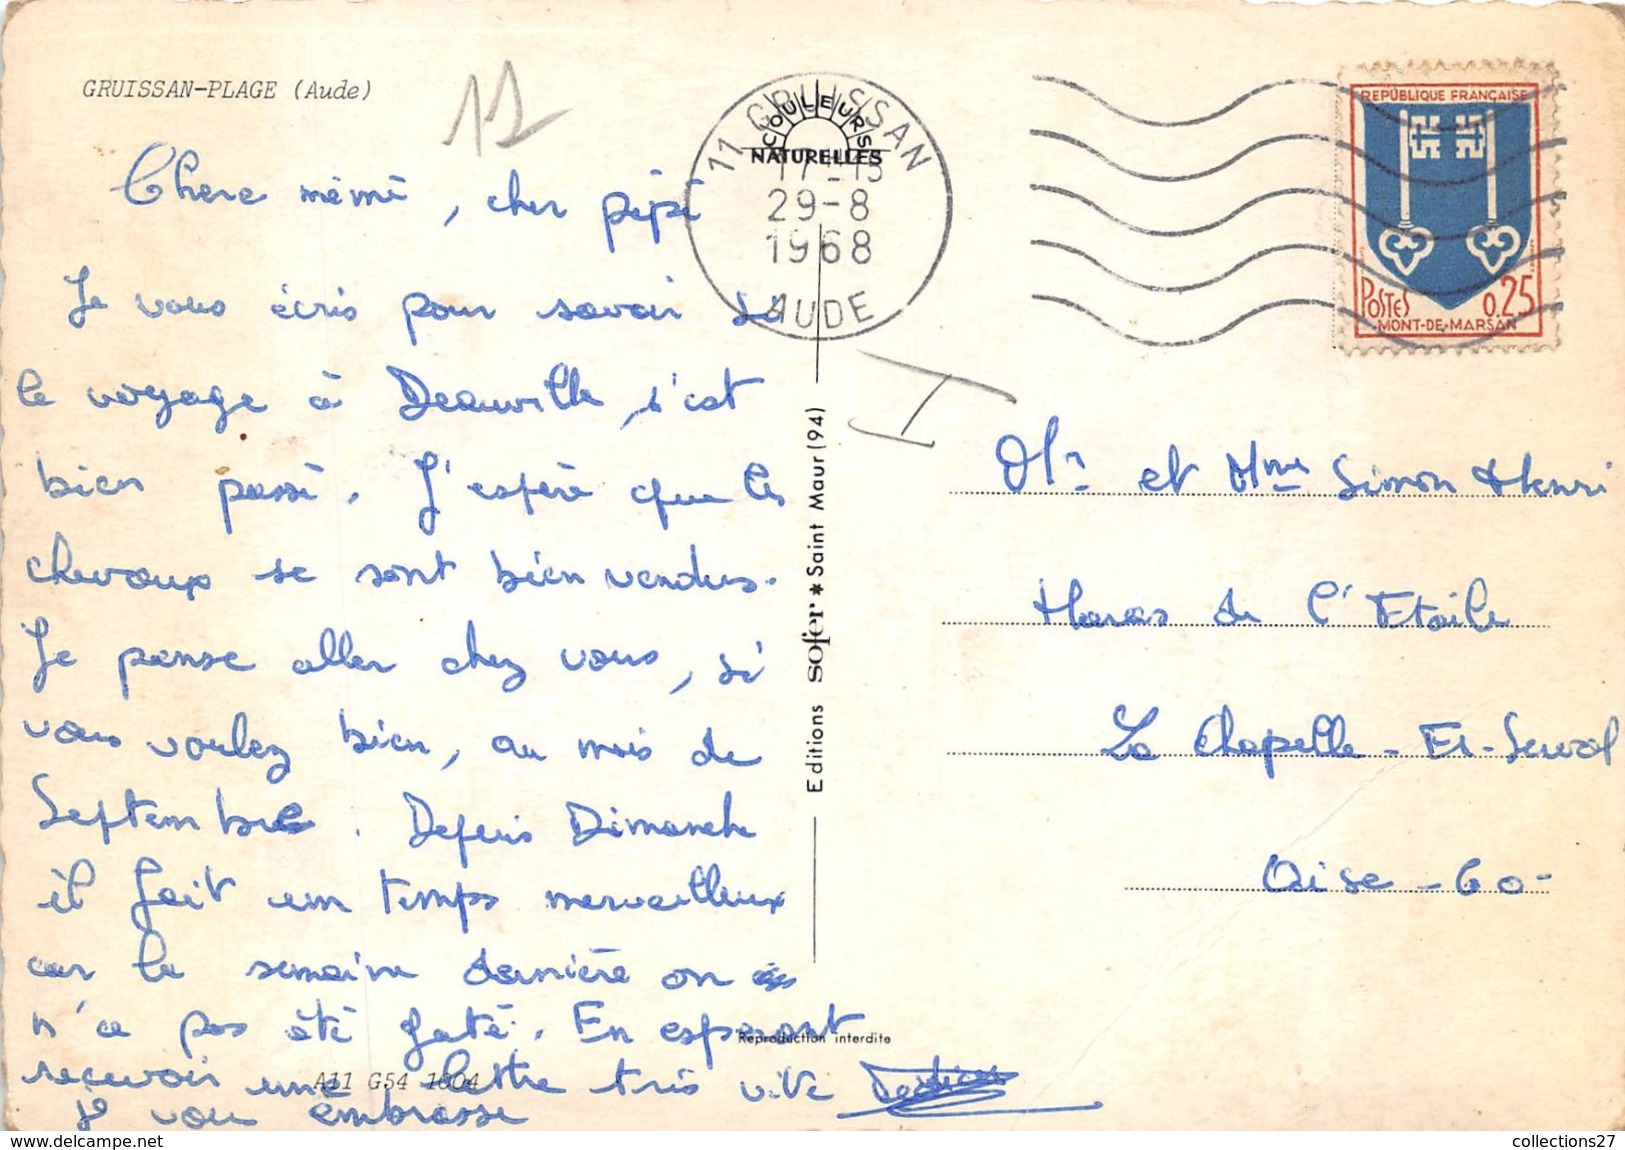 GRUISSAN-PLAGE (Aude)
11
COULEURS
NATURELLES
11 GRUISSAN
17-15
29-8
1968
AUDE
REPUBLIQUE FRANÇAISE
POSTES 0,25
MONT-DE-MARSAN
Chere mémé, cher pépé
Je vous écris pour savoir si
le voyage à Deauville, s'est
bien passé. J'espère que les
chevaux se sont bien vendus.
Je pense aller chez vous, si
vous voulez bien, au mois de
Septembre. Depuis Dimanche
il fait un temps merveilleux
car la semaine dernière on
n'a pas été gaté. En esperant
recevoir une lettre très vite
je vous embrasse
Mr et Mme Simon Henri
Haras de l'Etoile
La Chapelle-En-Serval
Oise -60-
Editions Sofer * Saint Maur (94)
Reproduction interdite
A11 G54 1004
collections27